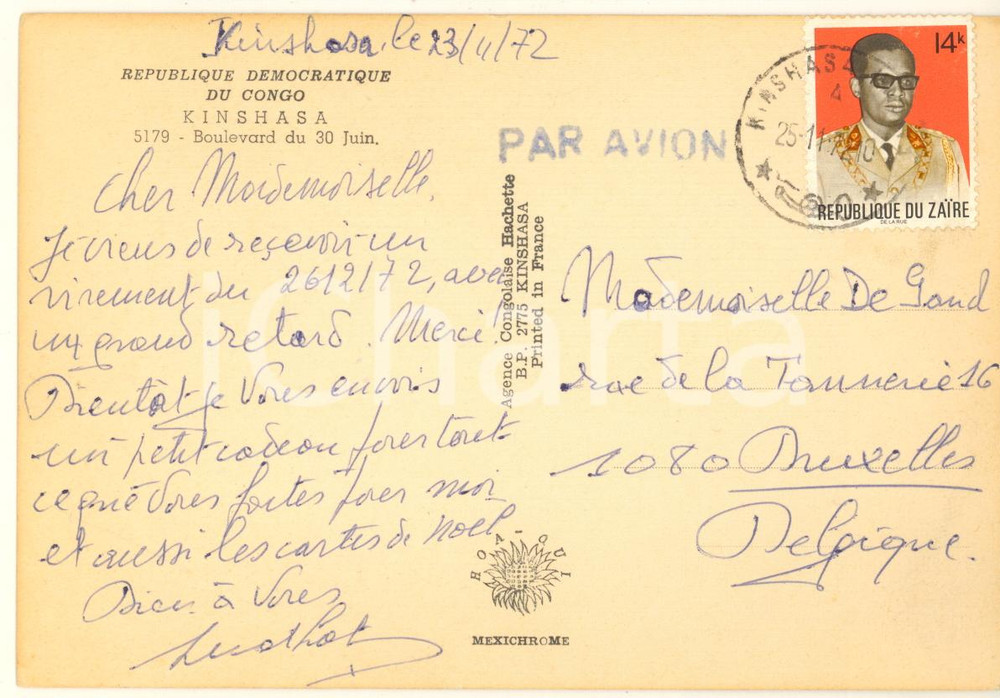 Kinshasa, le 23/11/72
REPUBLIQUE DEMOCRATIQUE
DU CONGO
KINSHASA
5179 - Boulevard du 30 Juin.
PAR AVION
KINSHASA
4
25-11-72
14K
REPUBLIQUE DU ZAÏRE
DE LA RUE
Cher Mademoiselle,
Je viens de reçevoir un
virement du 2612/72, avec
un grand retard. Merci!
Bientôt je vous envois
un petit cadeau pour tout
ce que vous faites pour moi
et aussi les cartes de Noel
Bien à vous
Agence Congolaise Hachette
B.P. 2775 KINSHASA
Printed in France
Mademoiselle De Gand
rue de la Tannerie 16
1080 Bruxelles
Belgique.
HOA-QUI
MEXICHROME
iCharta